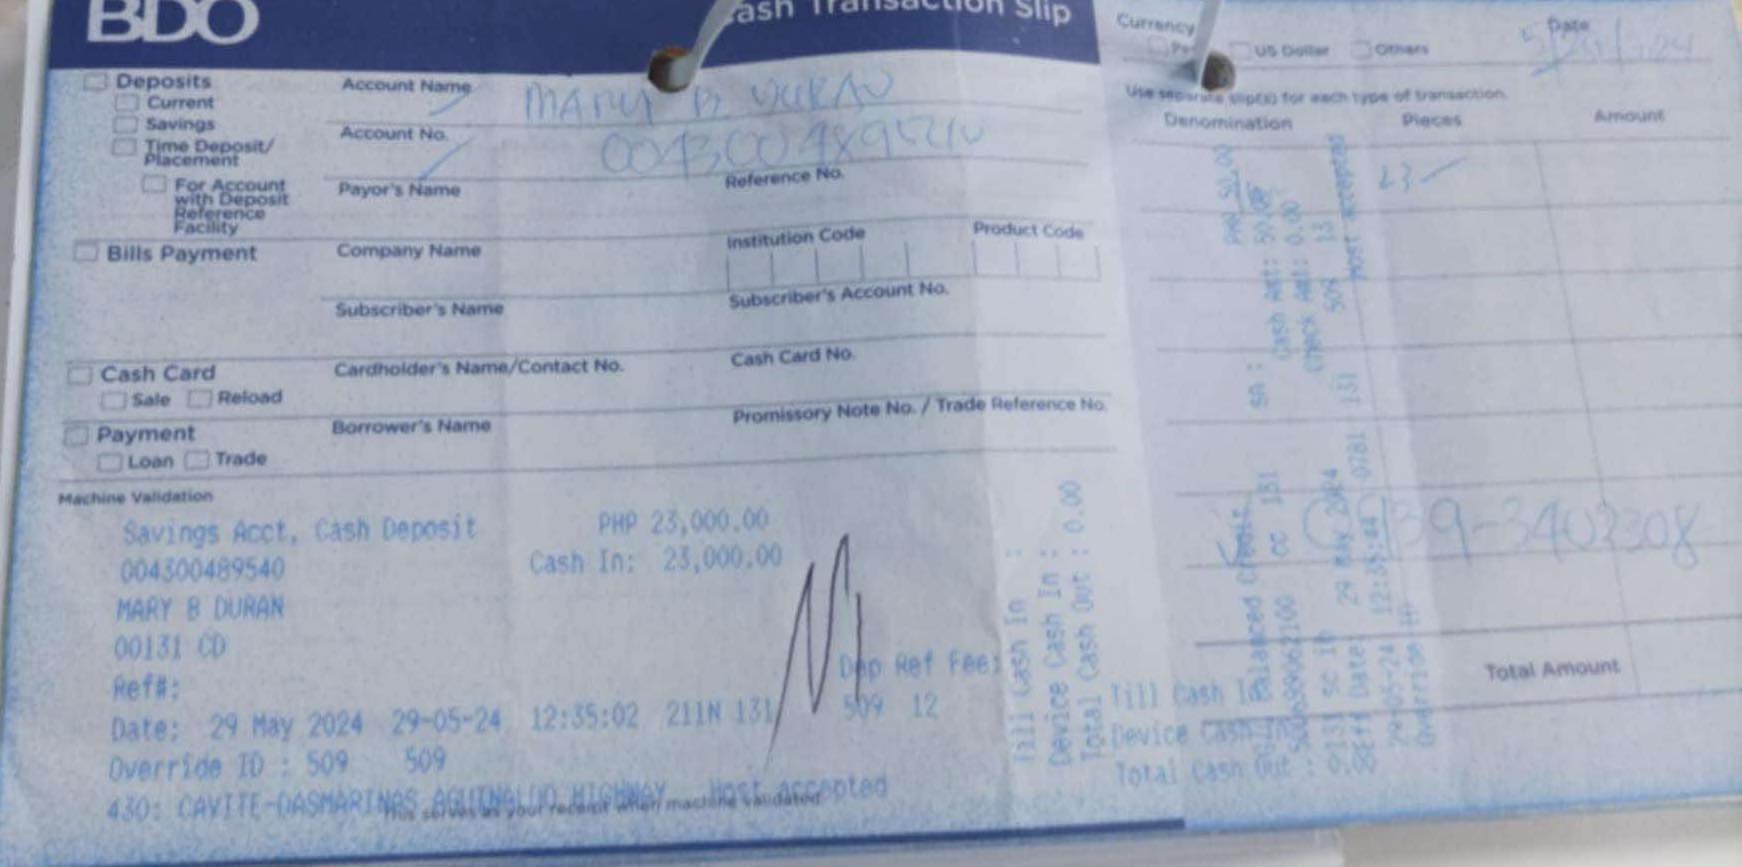 BDO
Cash Transaction Slip
Currency
US Dollar
Others
Date
Deposits
Current
Savings
Time Deposit/
Placement
For Account
with Deposit
Reference
Facility
Account Name
MARY B DURAN
Account No.
Payor's Name
Reference No.
Use separate slip(s) for each type of transaction.
Denomination
Pieces
Amount
23
Bills Payment
Company Name
Institution Code
Product Code
Subscriber's Name
Subscriber's Account No.
Cash Card
Sale
Reload
Cardholder's Name/Contact No.
Cash Card No.
Payment
Loan
Trade
Borrower's Name
Promissory Note No. / Trade Reference No.
Machine Validation
Savings Acct, Cash Deposit PHP 23,000.00
004300489540 Cash In: 23,000.00
MARY B DURAN
00131 CD
Ref#: Dep Ref Fee:
Date: 29 May 2024 29-05-24 12:35:02 211N 131 509 12
Override ID : 509 509
430: CAVITE-DASMARINAS AGUINALDO HIGHWAY Host accepted
This serves as your receipt when machine validated.
Till Cash In :
Device Cash In :
Total Cash Out : 0.00
Till Cash In
Device Cash In
Total Cash Out : 0.00
PHP 50.00
SA : Cash Amt: 50.00
Check Amt: 0.00
131 509 13
Host accepted
CC 131
0131 SC
Eff Date: 29 May 2024
29-05-24 12:35:44 0781
Override ID
39-3402308
Total Amount